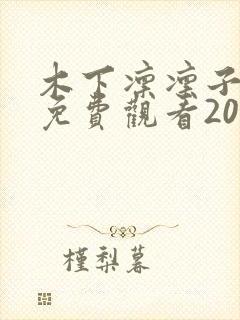 木下凛凛子
免費觀看20
槿梨暮